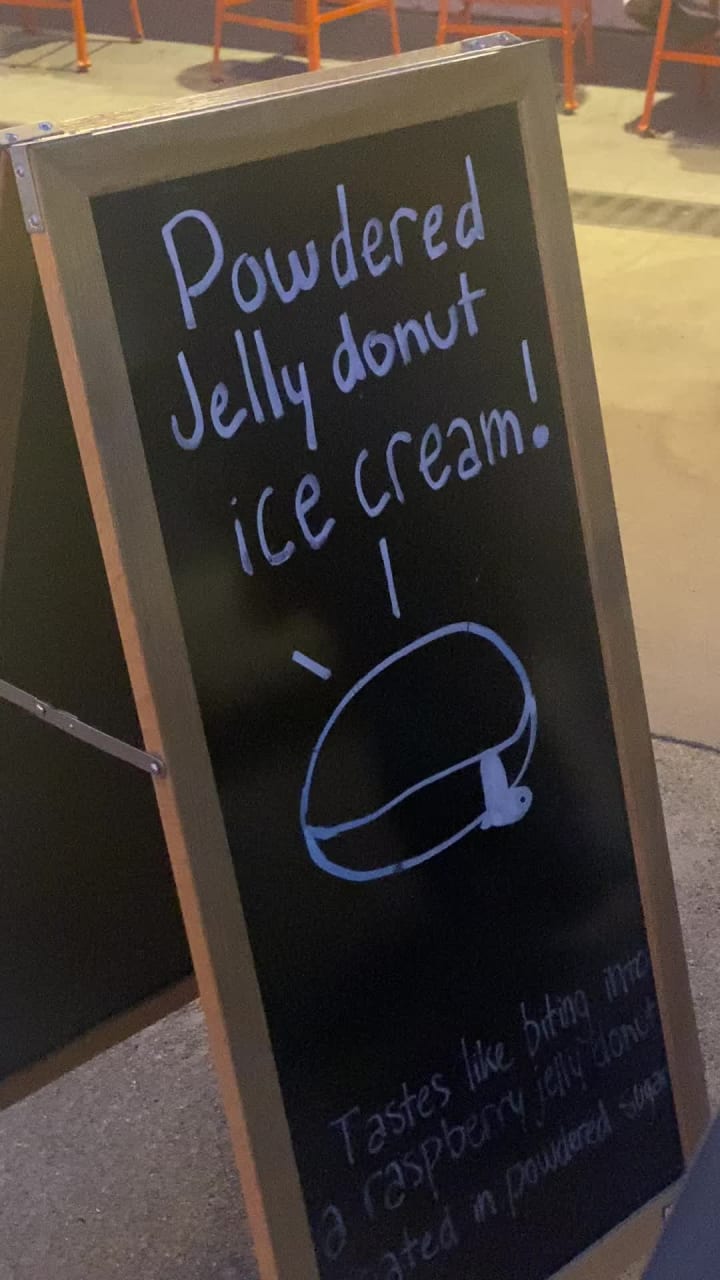 Powdered
Jelly donut
ice cream!
Tastes like biting into
a raspberry jelly donut
ated in powdered sugar